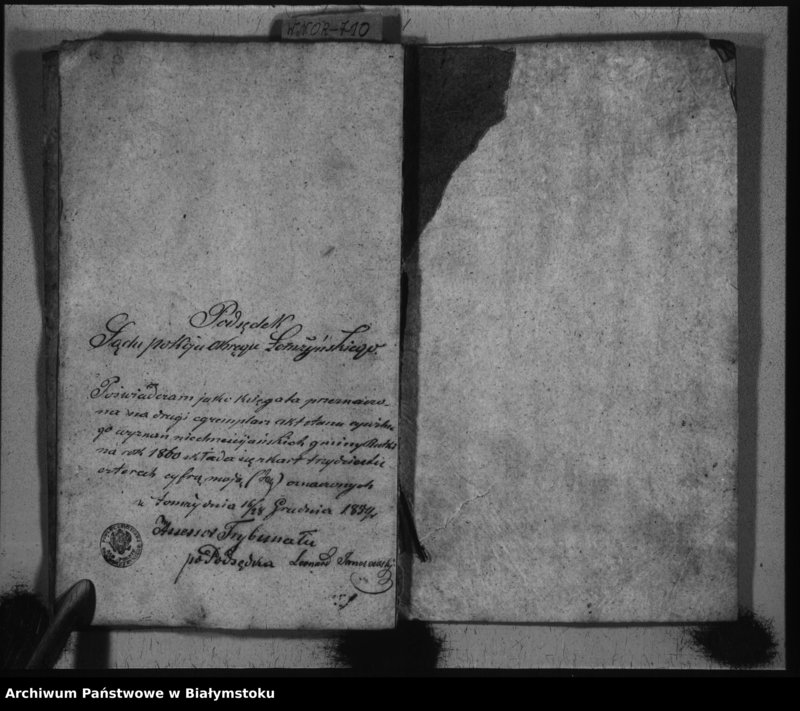 WNOR-710
Podsędek
Sądu pokoju okręgu Łomżyńskiego
Poświadczam jako księga ta przeznaczo
na na drugi egzemplarz akt stanu cywilne
go wyznań niechrześcijańskich gminy
na rok 1860 składa się z kart trzydziestu
czterech cyfrą moją oznaczonych
w Łomży dnia 16/28 Grudnia 1859 r
Assesor Trybunału
po Podsędka Leonard
Archiwum Państwowe w Białymstoku